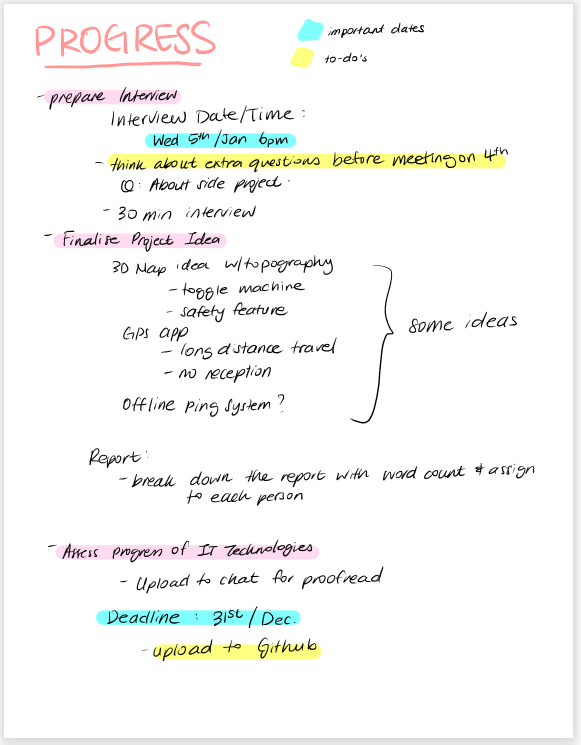 PROGRESS
important dates
to-do's
- prepare Interview
Interview Date/Time :
Wed 5th/Jan 6pm
- think about extra questions before meeting on 4th
Q: About side project.
- 30 min interview
- Finalise Project Idea
3D Map idea w/topography
- toggle machine
- safety feature
GPS app
- long distance travel
- no reception
Offline Ping System?
some ideas
Report:
- break down the report with word count & assign
to each person
- Assess progress of IT Technologies
- Upload to chat for proofread
Deadline : 31st/Dec.
- upload to Github